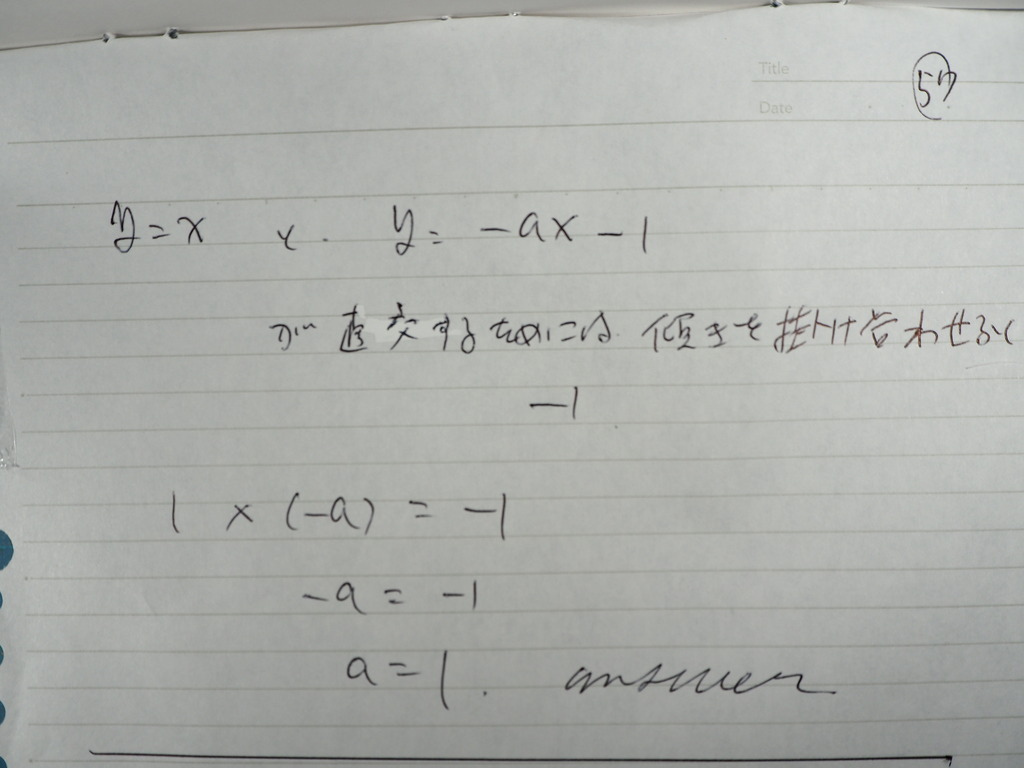 Title
Date
y = x と. y = -ax - 1
が 直交するためには. 傾きを掛け合わせると
-1
1 × (-a) = -1
-a = -1
a = 1. answer